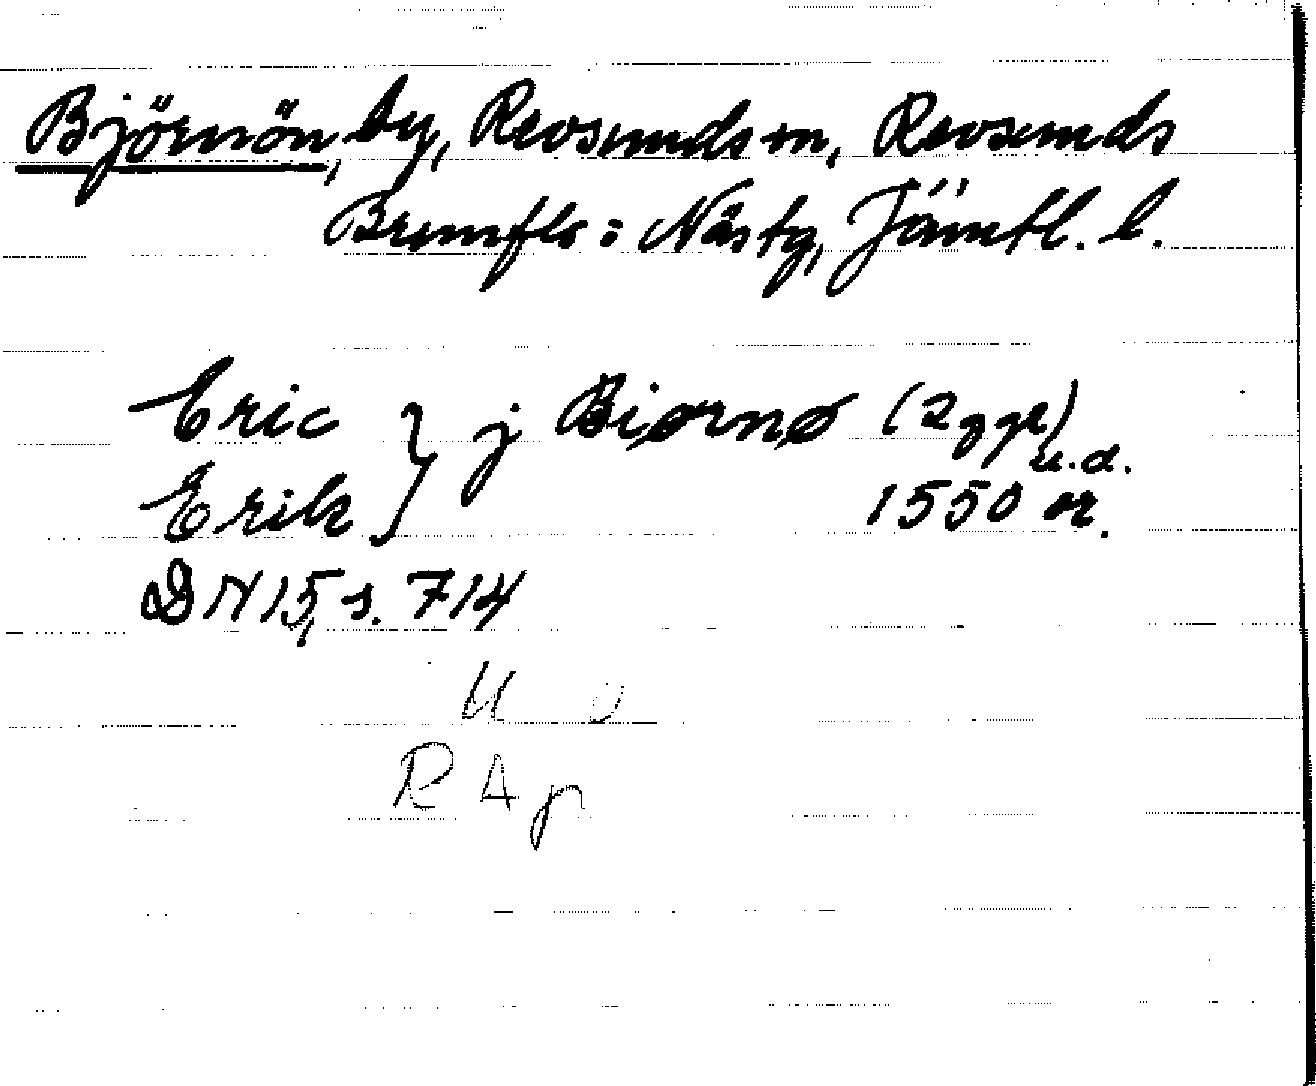 Björnön, by, Revsunds sn, Revsunds
Brunflo: Näs tg, Jämtl. l.
Eric } j Biørnø (2 ggr)
Erik } u.d.
1550 or.
DN 15, s. 714